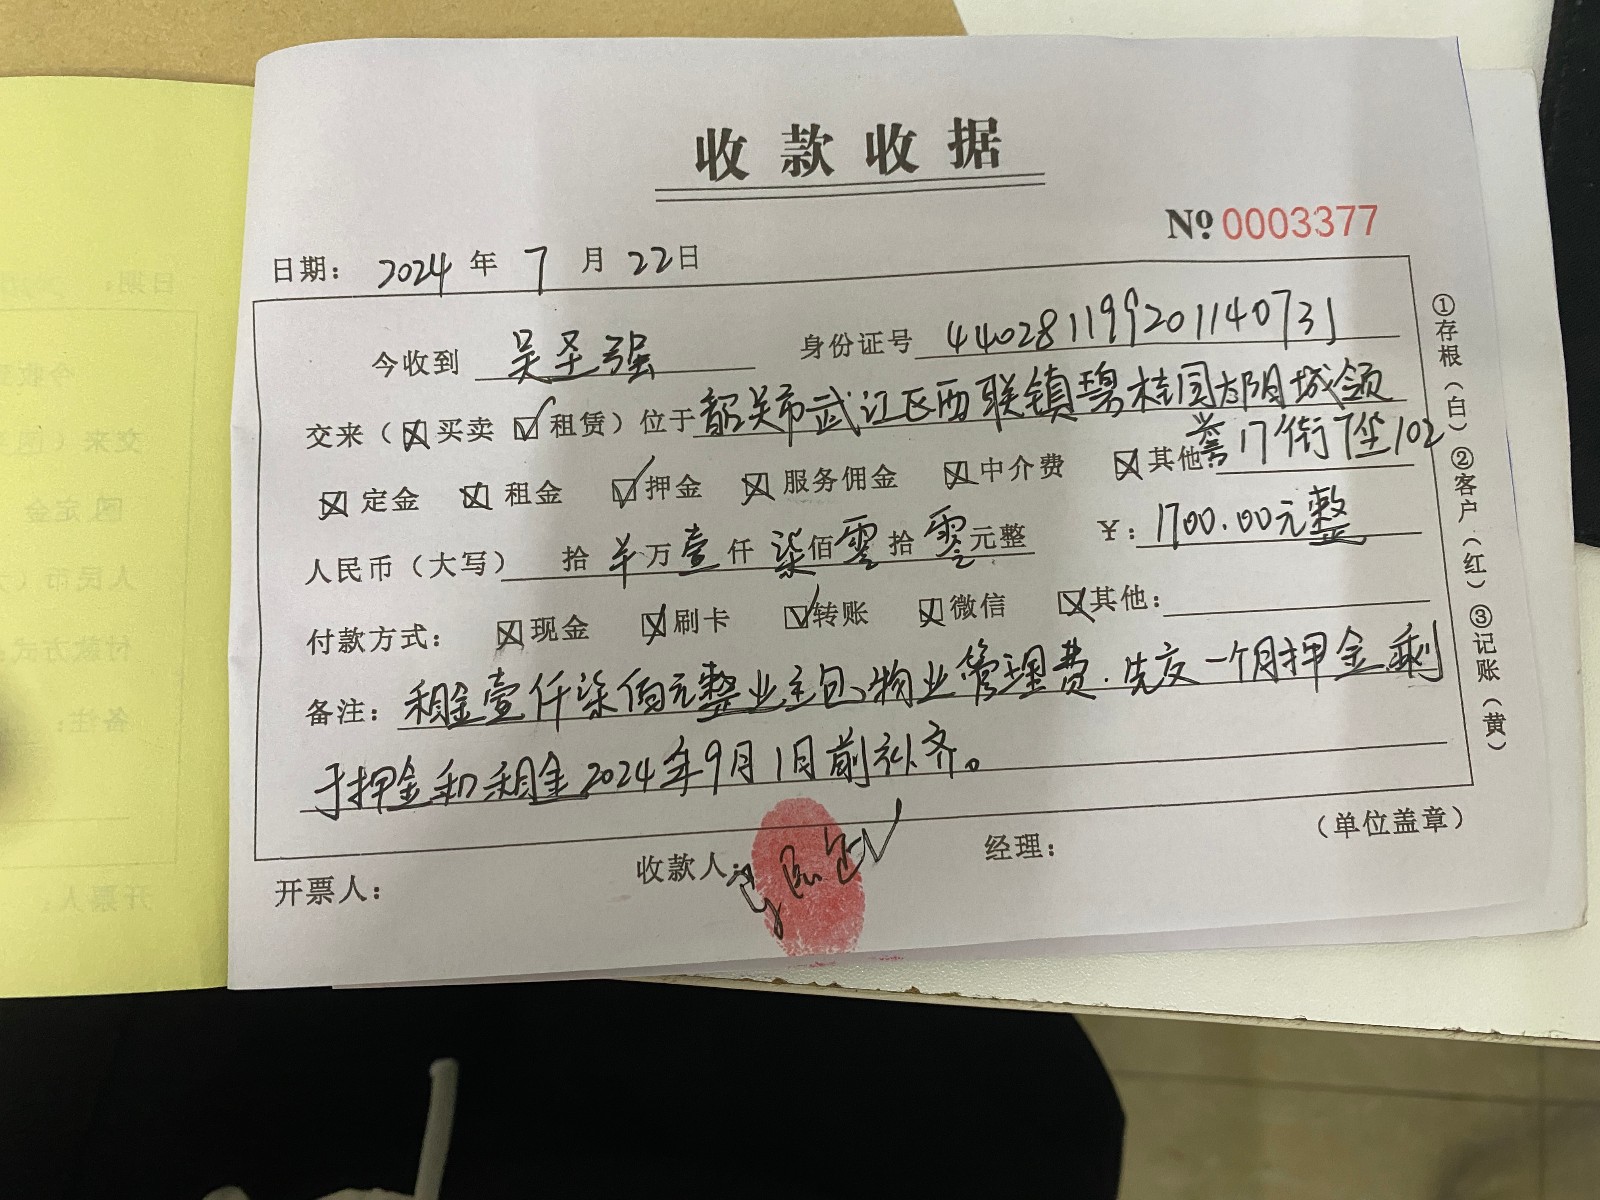 收款收据
№ 0003377
日期： 2024 年 7 月 22 日
今收到 吴圣强 身份证号 440281199201140731
交来（☒买卖 ☑租赁）位于 韶关市武江区西联镇碧桂园太阳城领
誉17街7座102
☒定金 ☒租金 ☑押金 ☒服务佣金 ☒中介费 ☒其他：
人民币（大写） 拾 羊 万 壹 仟 柒 佰 零 拾 零 元整 ¥：1700.00元整
付款方式： ☒现金 ☒刷卡 ☑转账 ☒微信 ☒其他：
备注： 租金壹仟柒佰元整业主包物业管理费.先交一个月押金剩
于押金和租金2024年9月1日前补齐。
开票人： 收款人： 经理： （单位盖章）
①存根（白）②客户（红）③记账（黄）